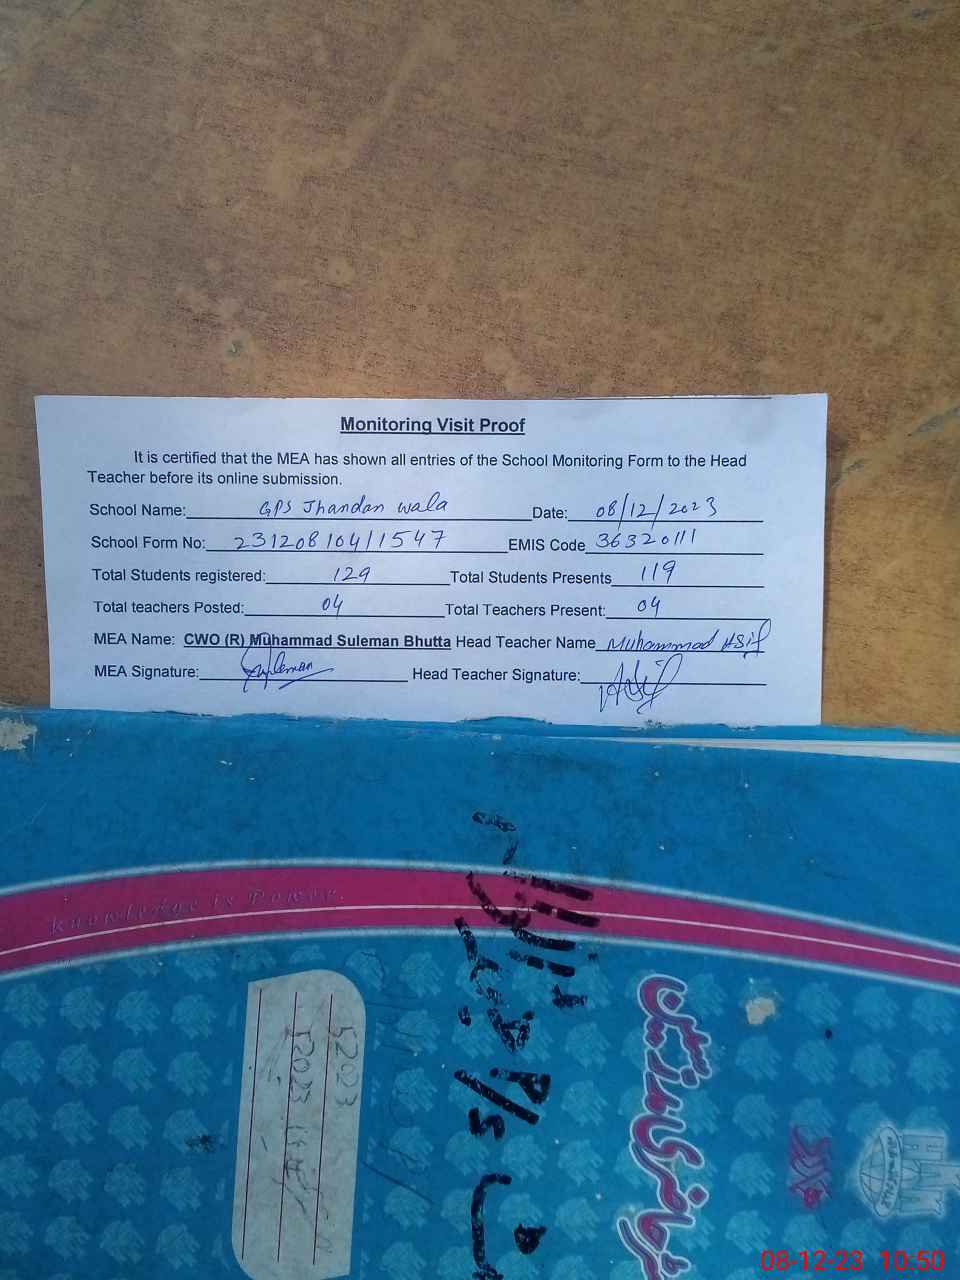 Monitoring Visit Proof
It is certified that the MEA has shown all entries of the School Monitoring Form to the Head
Teacher before its online submission.
School Name: GPS Jhandan wala Date: 08/12/2023
School Form No: 23120810411547 EMIS Code 36320111
Total Students registered: 129 Total Students Presents 119
Total teachers Posted: 04 Total Teachers Present: 04
MEA Name: CWO (R) Muhammad Suleman Bhutta Head Teacher Name Muhammad Asif
MEA Signature: Suleman Head Teacher Signature: Asif
Knowledge is Power.
P/S
2023
08-12-23 10:50